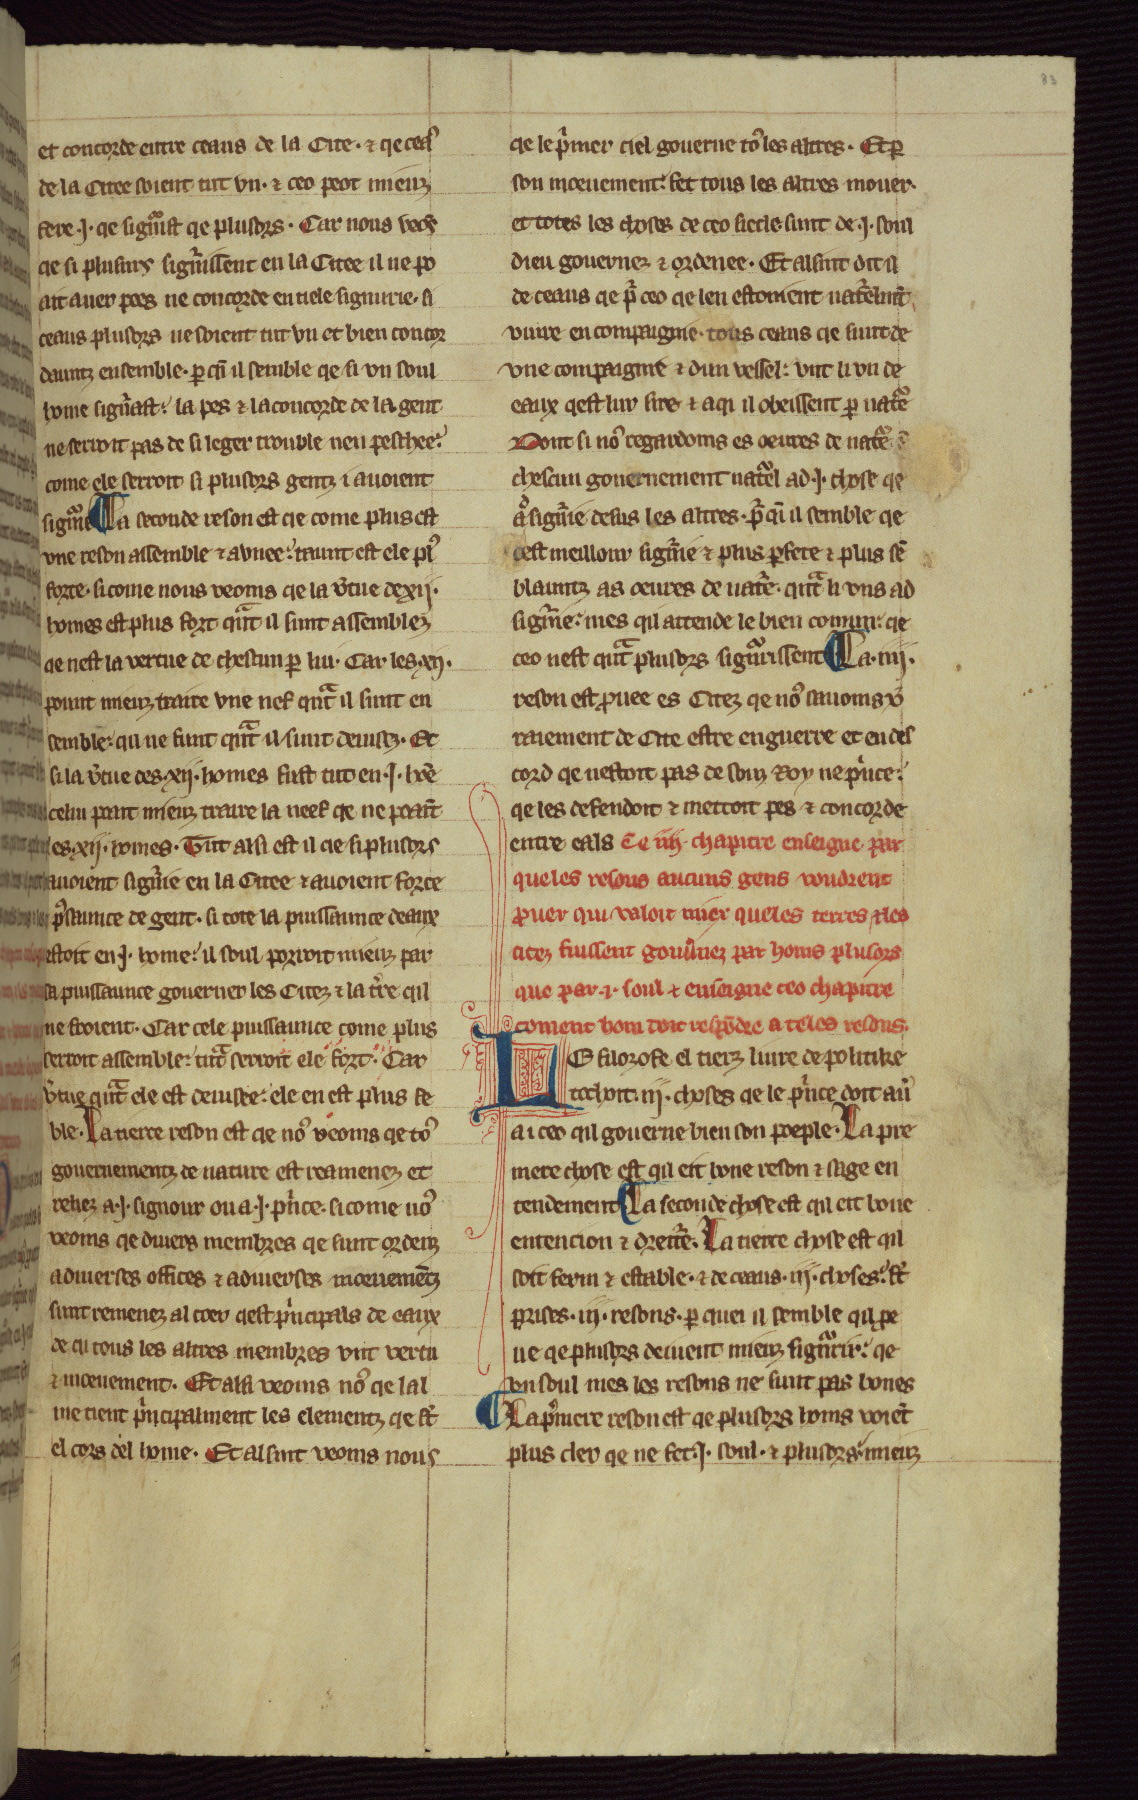 83
et concorde entre ceaus de la Cite · ⁊ qe ceaꝰ
de la Citee soient tut vn · ⁊ ceo peot mieuz
fere ·j· qe signͥast qe plusors · Car nous veoms
qe si plusurs signͥissent en la Citee il ne po
ait auer pees ne concorde en tiele signurie · si
ceaus plusors ne soient tut vn et bien concor
dauntz ensemble · ꝑ qͥ il semble qe si vn soul
home signͥast : la pes ⁊ la concorde de la gent
ne serroit pas de si leger trouble neu peschee :
come ele serroit si plusors gentz i auoient
signͥie ¶ La seconde reson est qe come plus est
vne reson assemble ⁊ avnee : taunt est ele plꝰ
forte · si come nous veoms qe la v̾tue de xij ·
homes est plus fort qͣt il sunt assemblez
qe nest la vertue de chescun ꝑ lui · Car les · xij ·
pount mieuz traire vne nef qͣt il sunt en
semble : qu ne funt qͣt il sunt deuisez · Et
si la v̾tue des · xij · homes fust tut en ·j· hōe
celui poait mieuz traire la neef qe ne poaūt
les xij · homes · Tut alsi est il qe si plusors
auoient signͥie en la Citee ⁊ auoient force
⁊ pͥsaunce de gent · si tote la puissaunce deaux
estoit en ·j· home : il soul porroit mieuz par
sa puissaunce gouerner les Citez ⁊ la tr̄e qil
ne feroient · Car cele puissaunce come plus
serroit assemble : tātͣ serroit ele fort : Car
v̾tue qͣt ele est deuisee : ele en est plus fe
ble · La tierce reson est qe noꝰ veoms qe toꝰ
gouernementz de nature est reamenez et
reliez a ·j· signour ou a ·j· pͥnce · si come noꝰ
veoms qe diuers membres qe sunt ordeinz
a diuerses offices ⁊ a diuerses moeuemētz
sunt remenez al coer qest pͥncipals de eaux
de qi tous les altres membres vnt vertu
⁊ moeuement · Et alsi veoms noꝰ qe lal
me tient pͥncipalment les elementz qe sūt
el cors del home · Et alsint veoms nous
qe le pͥmer ciel gouerne toꝰ les altres · Et ꝑ
son moeuement : fet tous les altres mouer ·
et totes les choses de ceo siecle sunt de ·j· soul
dieu gouernez ⁊ ordenee · Et alsint dit il
de ceaus qe pͣ ceo qe len estorient naturelmt̄
viure en compaignie · tous ceaus qe sunt de
vne compaignie ⁊ dun vessel : vnt li vn de
eaux qest lur sire ⁊ a qi il obeissent ꝑ natͥe
Dont si noꝰ regardoms es oeures de natͥe
chescun gouernement natͥel ad ·j· chose qe
a signͥie desus les altres · pͣ qi il semble qe
cest meillour signͥie ⁊ plus ꝑfete ⁊ plus sē
blauntz as oeures de natͥe · qͣt li vns ad
signͥie : mes qil attende le bien comun : qe
ceo nest qͣt plusors signͥissent ¶ La · iiij ·
reson est ꝓuee es Citez qe noꝰ sauoms v̾
raiement de Cite estre en guerre et en des
cord qe nestoit pas de souz Roy ne pͥnce :
qe les defendoit ⁊ mettoit pes ⁊ concorde
entre eals Ce iiij · chapitre enseigne par
queles resons aucuns gens voudrent
ꝓuer qui valoit mier queles terres ⁊ les
citez fuissent gouūnez par homs plusors
que par ·i· soul ⁊ enseigne ceo chapitre
coment hom doit respōdre a teles resons ·
LE filozofe el tierz liure de politike
tochoit · iij · choses qe le pͥnce doit au̾
ai ceo qil gouerne bien son poeple · La pre
mere chose est qil eit bone reson ⁊ sage en
tendement ¶ La seconde chose est qil eit bone
entencion ⁊ dreitͥe · La tierce chose est qil
soit ferm ⁊ estable · ⁊ de ceaus · iij · choses : sūt
ꝑrises · iij · resons · ꝑ quei il semble qil pe
ue qe plusors deiuent mieuz signͥrir : qe
vn soul mes les resons ne sunt pas bones
¶ La pͥmiere reson est qe plusors homs voiēt
plus cler qe ne fet ·j· soul · ⁊ plusors : mieuz